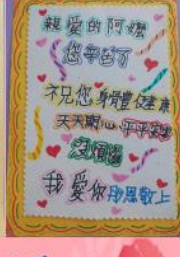 親愛的阿嬤
您辛苦了
祝您身體健康
天天開心平平安安
沒煩惱
我愛你 恩敬上